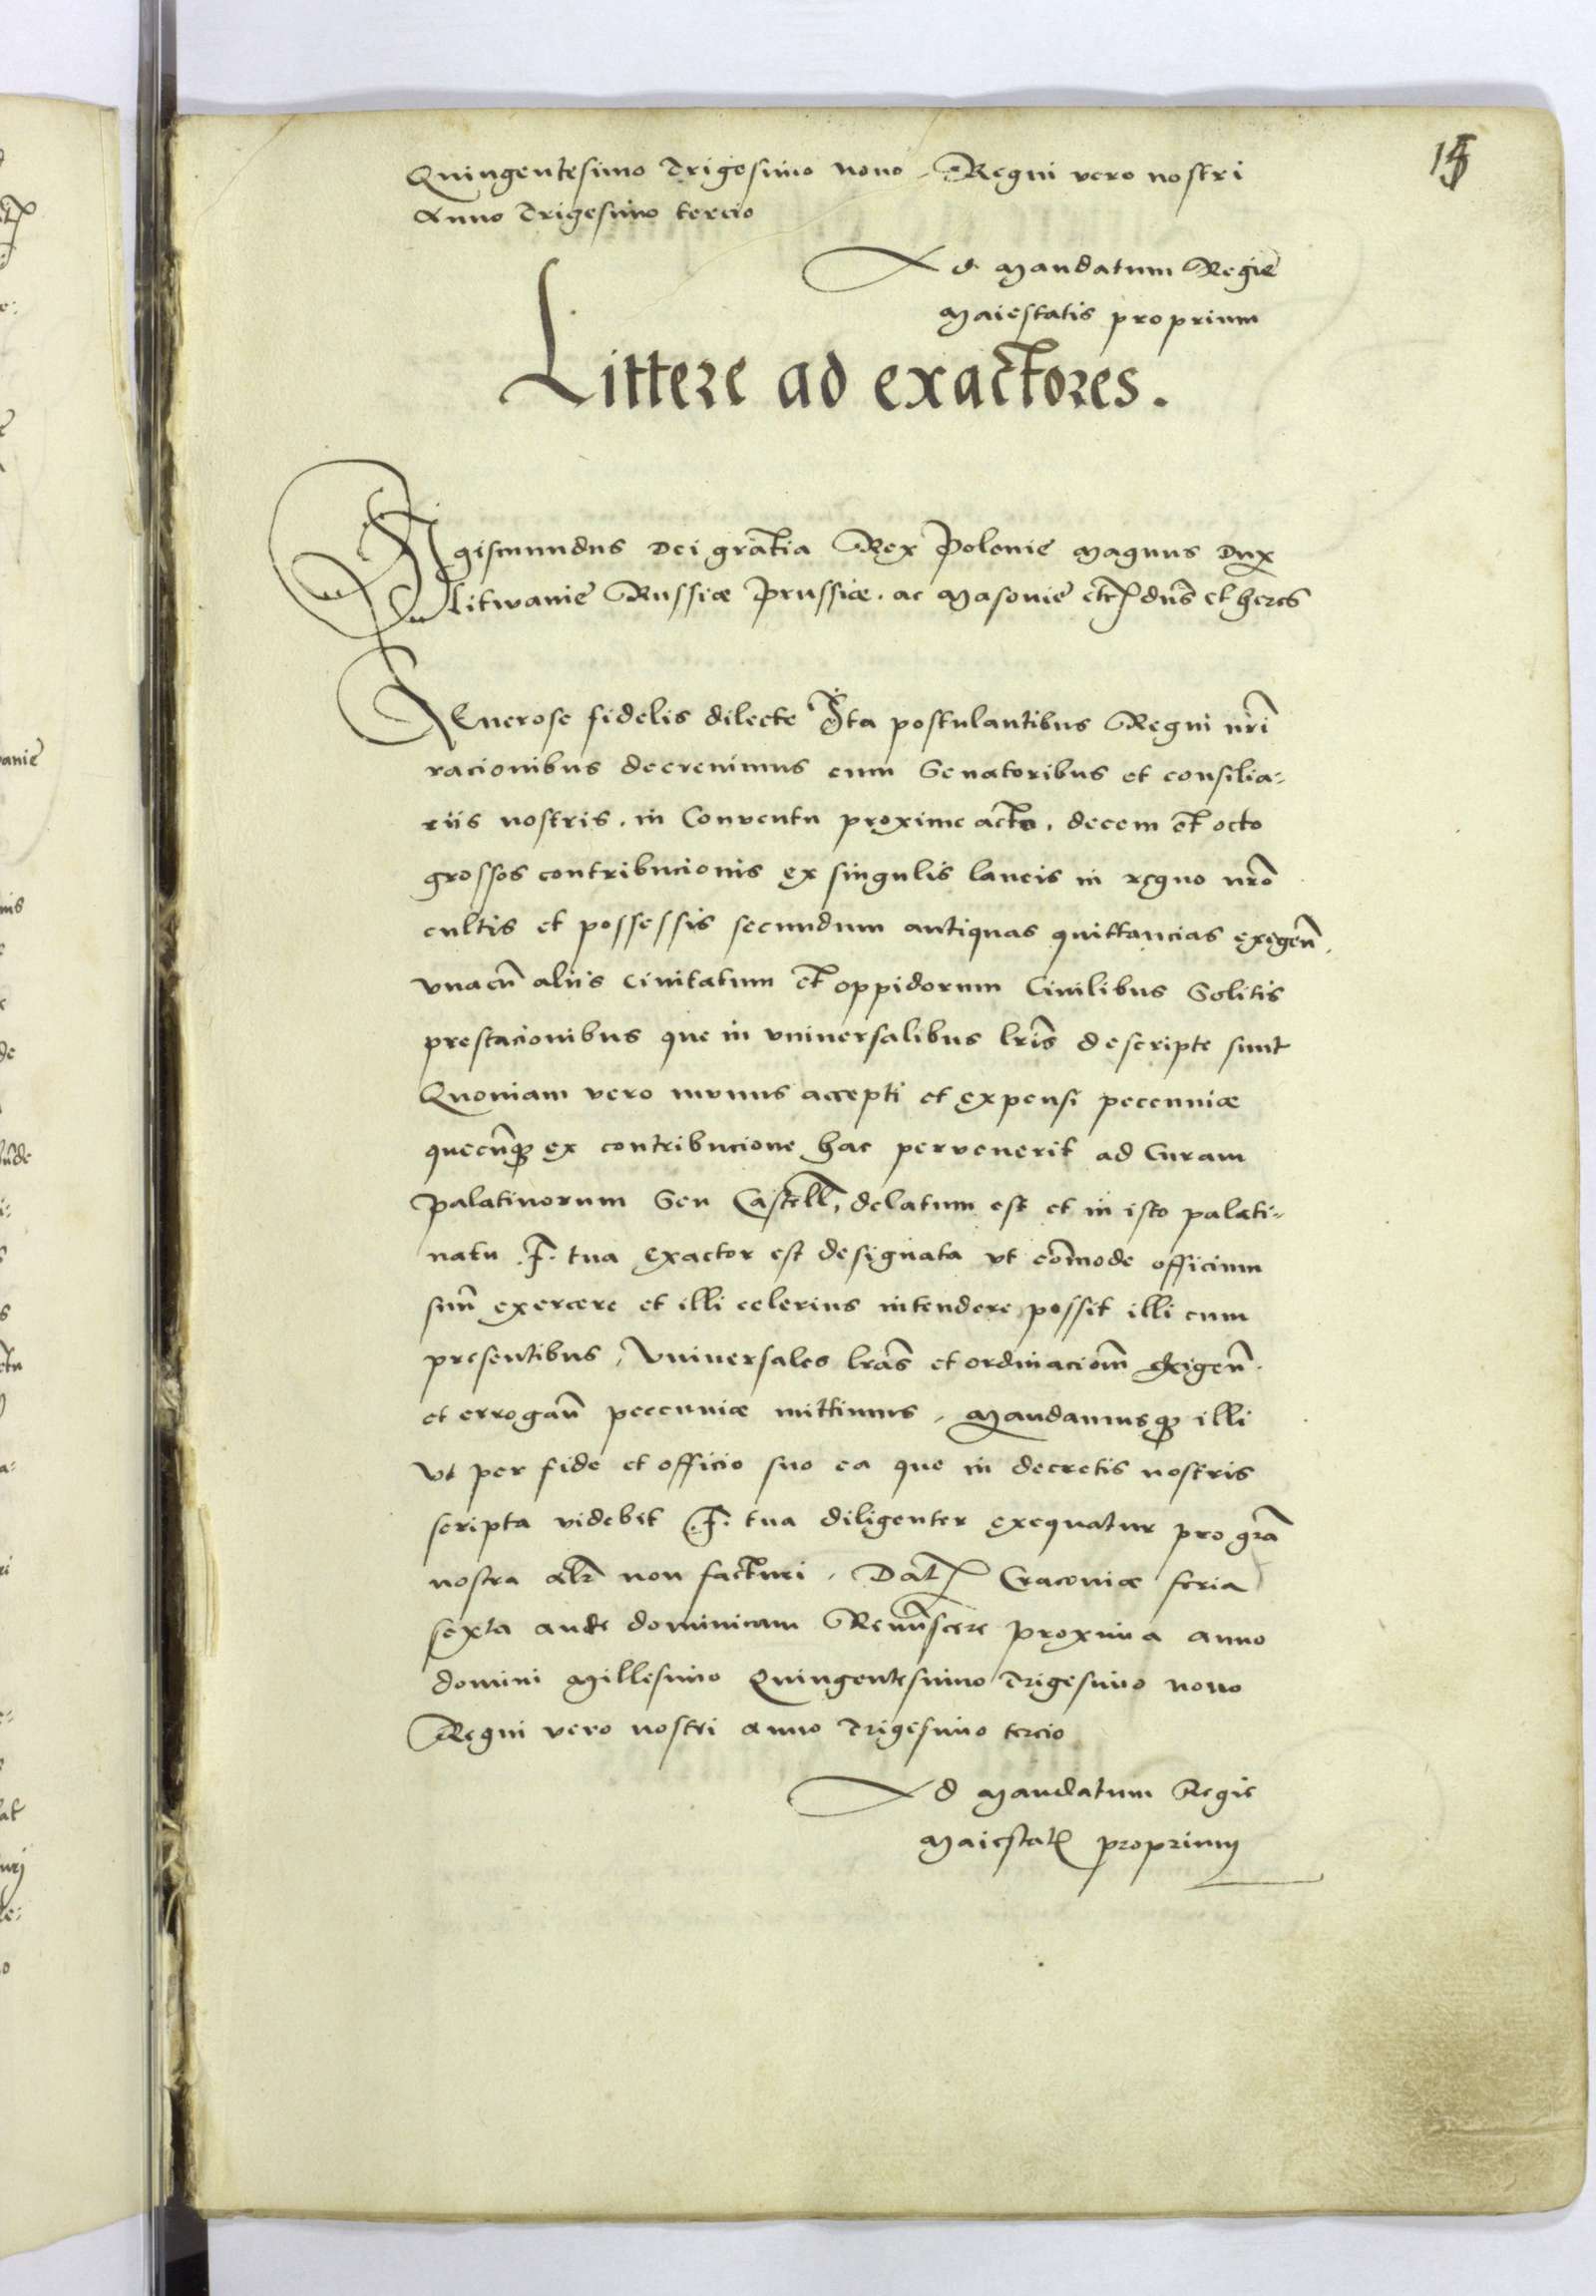 15
Quingentesimo Trigesimo nono, Regni vero nostri
Anno Trigesimo tercio
Ad Mandatum Regie
Maiestatis proprium
Littere ad exactores.
Sigismundus Dei gratia Rex Polonie Magnus Dux
Litwanie Russiæ Prussiæ. ac Masovie etc dns et heres
Generose fidelis dilecte Ita postulantibus Regni nri
racionibus decrevimus cum Senatoribus et consilia-
riis nostris. in Conventu proxime acto, decem et octo
grossos contribucionis ex singulis laneis in regno nro
cultis et possessis secundum antiquas quittancias exigen.
vnacu aliis Civitatum et oppidorum Civilibus Solitis
prestacionibus que in vniversalibus lris descripte sunt
Quoniam vero munus accepti et expensi pecuniæ
quecunq ex contribucione hac pervenerit ad Curam
Palatinorum Seu Castell, delatum est et in isto palati-
natu .F. tua exactor est designata vt comode officium
suu exercere et illi celerius intendere possit illi cum
presentibus, Vniversales lras et ordinaciom exigen.
et errogan pecuniæ mittimus, Mandamusq illi
Vt per fide et officio suo ea que in decretis nostris
scripta videbit .F. tua diligenter exequatur pro gra
nostra alr non facturi, Dat Cracoviæ feria
sexta ante dominicam Reminscere proxima anno
domini Millesimo Quingentesimo Trigesimo nono
Regni vero nostri anno Trigesimo tercio
Ad Mandatum Regie
Maiestat proprium